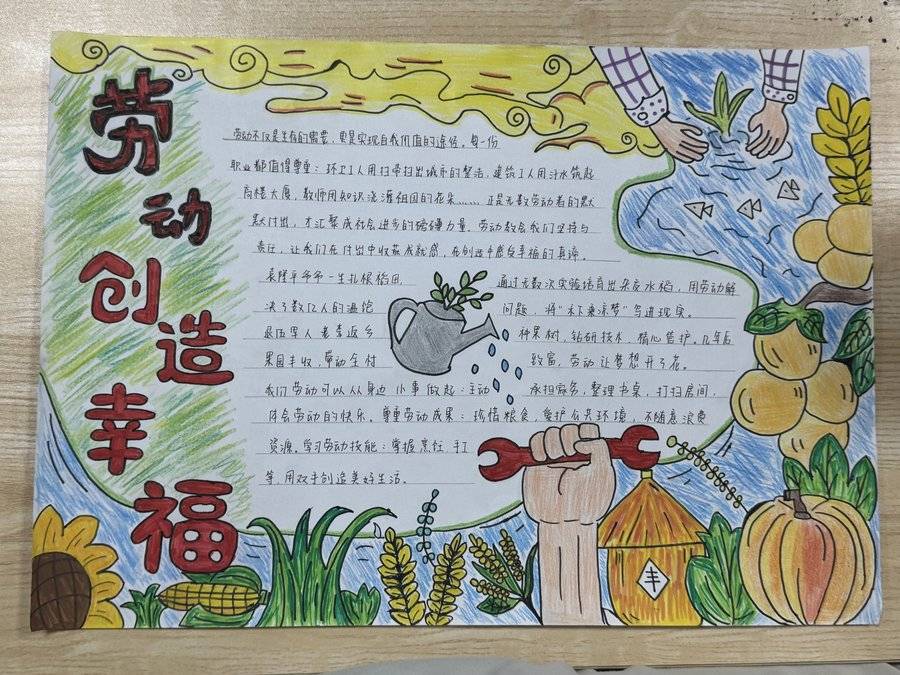 劳动创造幸福
劳动不仅是生存的需要，更是实现自我价值的途径。每一份
职业都值得尊重：环卫工人用扫帚扫出城市的整洁，建筑工人用汗水筑起
高楼大厦，教师用知识浇灌祖国的花朵……正是无数劳动者的默
默付出，才汇聚成社会进步的磅礴力量。劳动教会我们坚持与
责任，让我们在付出中收获成就感，在创造中感受幸福的真谛。
袁隆平爷爷一生扎根稻田 通过无数次实验培育出杂交水稻，用劳动解
决了数亿人的温饱 问题，将“禾下乘凉梦”写进现实。
退伍军人老李返乡 种果树，钻研技术，精心管护。几年后
果园丰收，带动全村 致富，劳动让梦想开了花。
我们劳动可以从身边小事做起：主动 承担家务，整理书桌，打扫房间，
体会劳动的快乐。尊重劳动成果：珍惜粮食，爱护公共环境，不随意浪费
资源。学习劳动技能：掌握烹饪 打
等，用双手创造美好生活。
丰